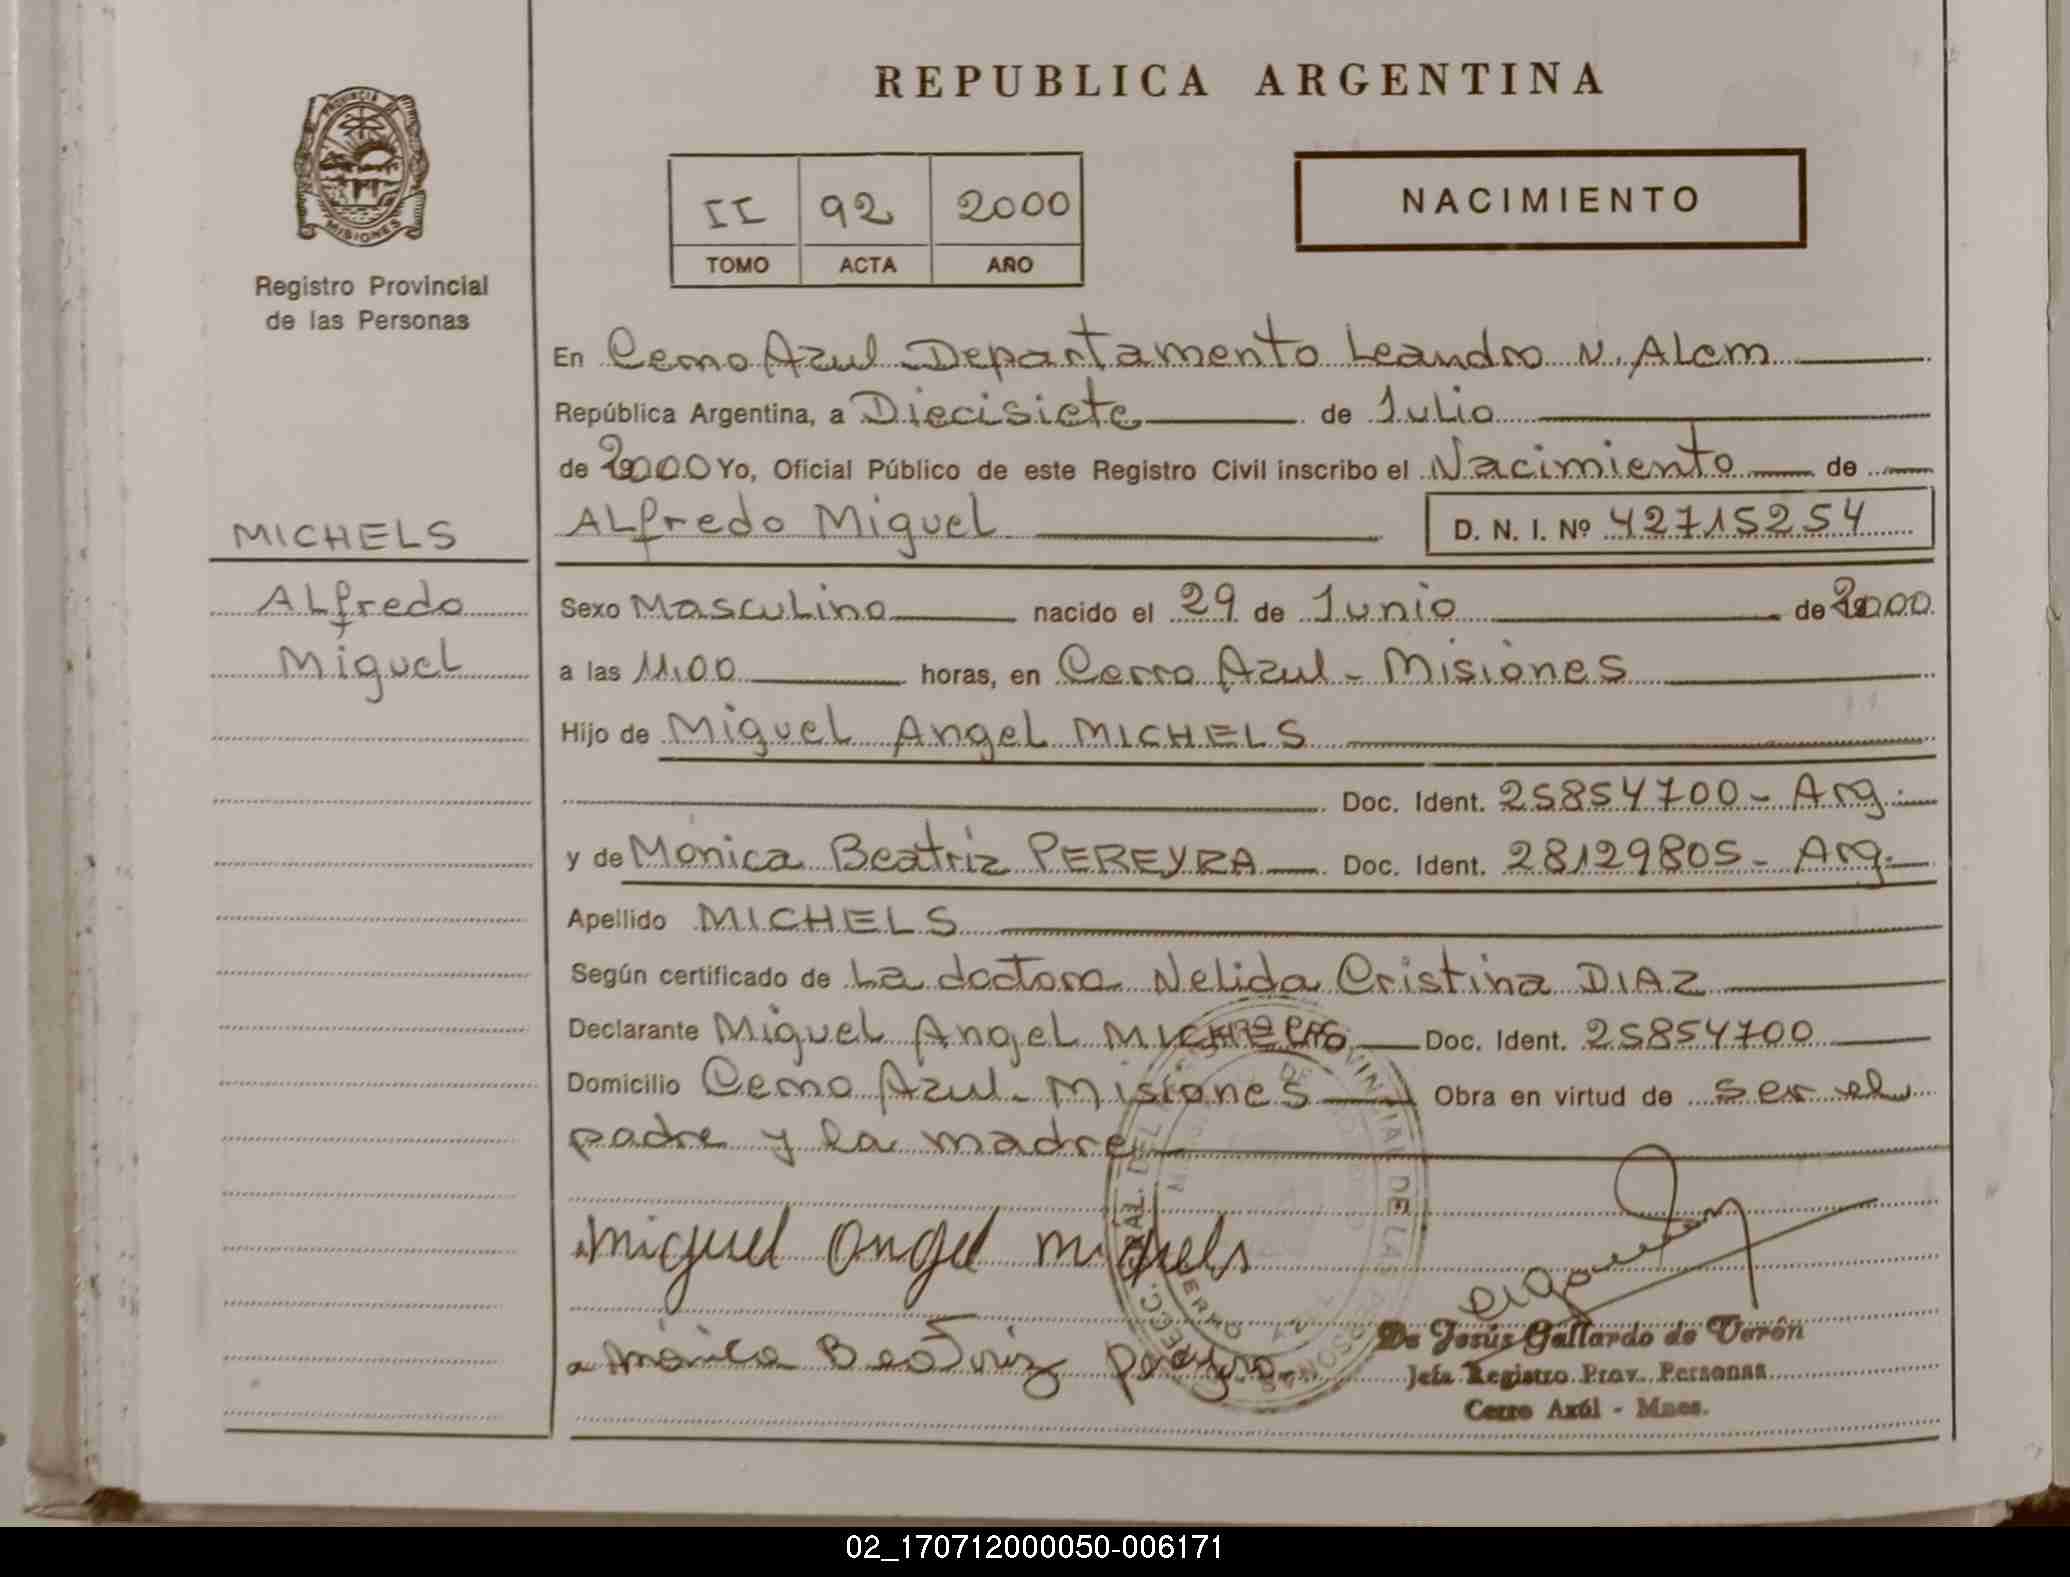 REPUBLICA ARGENTINA
PROVINCIA DE MISIONES
Registro Provincial
de las Personas
II 92 2000
TOMO ACTA AÑO
NACIMIENTO
En Cerro Azul Departamento Leandro N. Alem
República Argentina, a Diecisiete de Julio
de 2000 Yo, Oficial Público de este Registro Civil inscribo el Nacimiento de
MICHELS
Alfredo
Miguel
Alfredo Miguel D. N. I. Nº 42715254
Sexo Masculino nacido el 29 de Junio de 2000
a las 11.00 horas, en Cerro Azul - Misiones
Hijo de Miguel Angel MICHELS
Doc. Ident. 25854700 - Arg.
y de Mónica Beatriz PEREYRA Doc. Ident. 28129805 - Arg.
Apellido MICHELS
Según certificado de La doctora Nelida Cristina DIAZ
Declarante Miguel Angel MICHELS Doc. Ident. 25854700
Domicilio Cerro Azul - Misiones Obra en virtud de ser el
padre y la madre
Miguel Angel Michels
Mónica Beatriz Pereyra
De Jesús Gallardo de Verón
Jefa Registro Prov. Personas
Cerro Azúl - Mnes.
02_170712000050-006171